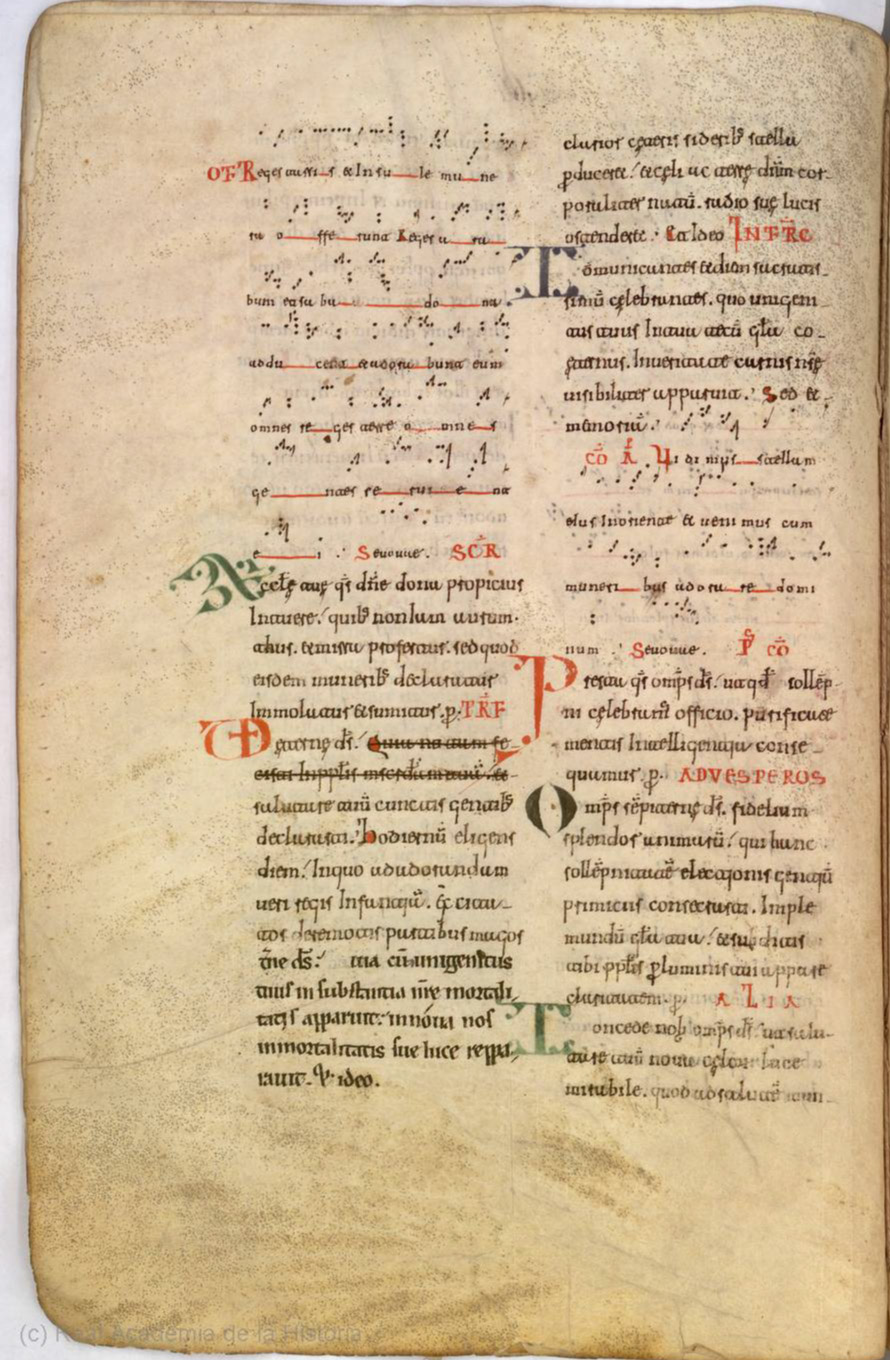 OF Reges tarsis et Insule mune
ra offerunt Reges ara
bum et saba dona
adducent et adorabunt eum
omnes reges terre omnes
gentes servient
ei . Seuouae . SCR
Ecclę tuę qs dne dona propicius
Intuere. quib non Iam aurum.
thus. et mirra profertur. sed quod
eisdem muneribꝰ declaratur
Immolatur et sumitur. p. TRF
Eternę ds. Quia notam fe
cisti In pplis misericdiam tuā. et
salutare tuū cunctis gentibꝰ
declarasti. hodiernū eligens
diem. In quo ad adorandum
ueri regis Infantiā. excita
tos de remotis partibus magos
tne ds. uia cū unigenitus
tuus in substantia nrę mortali
tatis apparuit. in noua nos
inmortalitatis sue luce repa
rauit. Et ideo.
clarior ceteris sideribꝰ stella
pduceret. et cęli ac terrę dnm cor
poraliter natū. radio suę lucis
ostenderet. Et Ideo INFRC
Comunicantes et diem sacratis
simū cęlebrantes. quo unigeni
tus tuus In tua tecū gła co
ęternus. In ueritate carnis nrę
uisibiliter apparuit. Sed et
memoriā.
CO A Vidimus stellam
eius In oriente et uenimus cum
muneribus adorare domi
num . Seuouae. P CO
Presta qs omps ds. ut qd sollēp
ni cęlebramꝰ officio. purificatę
mentis Intelligentia conse
quamur. p. AD VESPEROS
Omps sēpiternę ds. fidelium
splendor animarū. qui hanc
sollēpnitatē electionis gentiū
primiciis consecrasti. Imple
mundū gła tua. et subditis
tibi pplis p luminis tui appare
claritatem. p. ALIA
Concede nob omps ds. ut salu
tare tuū noua cęlorū luce
mirabile. quod ad salutē mun
(c) Real Academia de la Historia